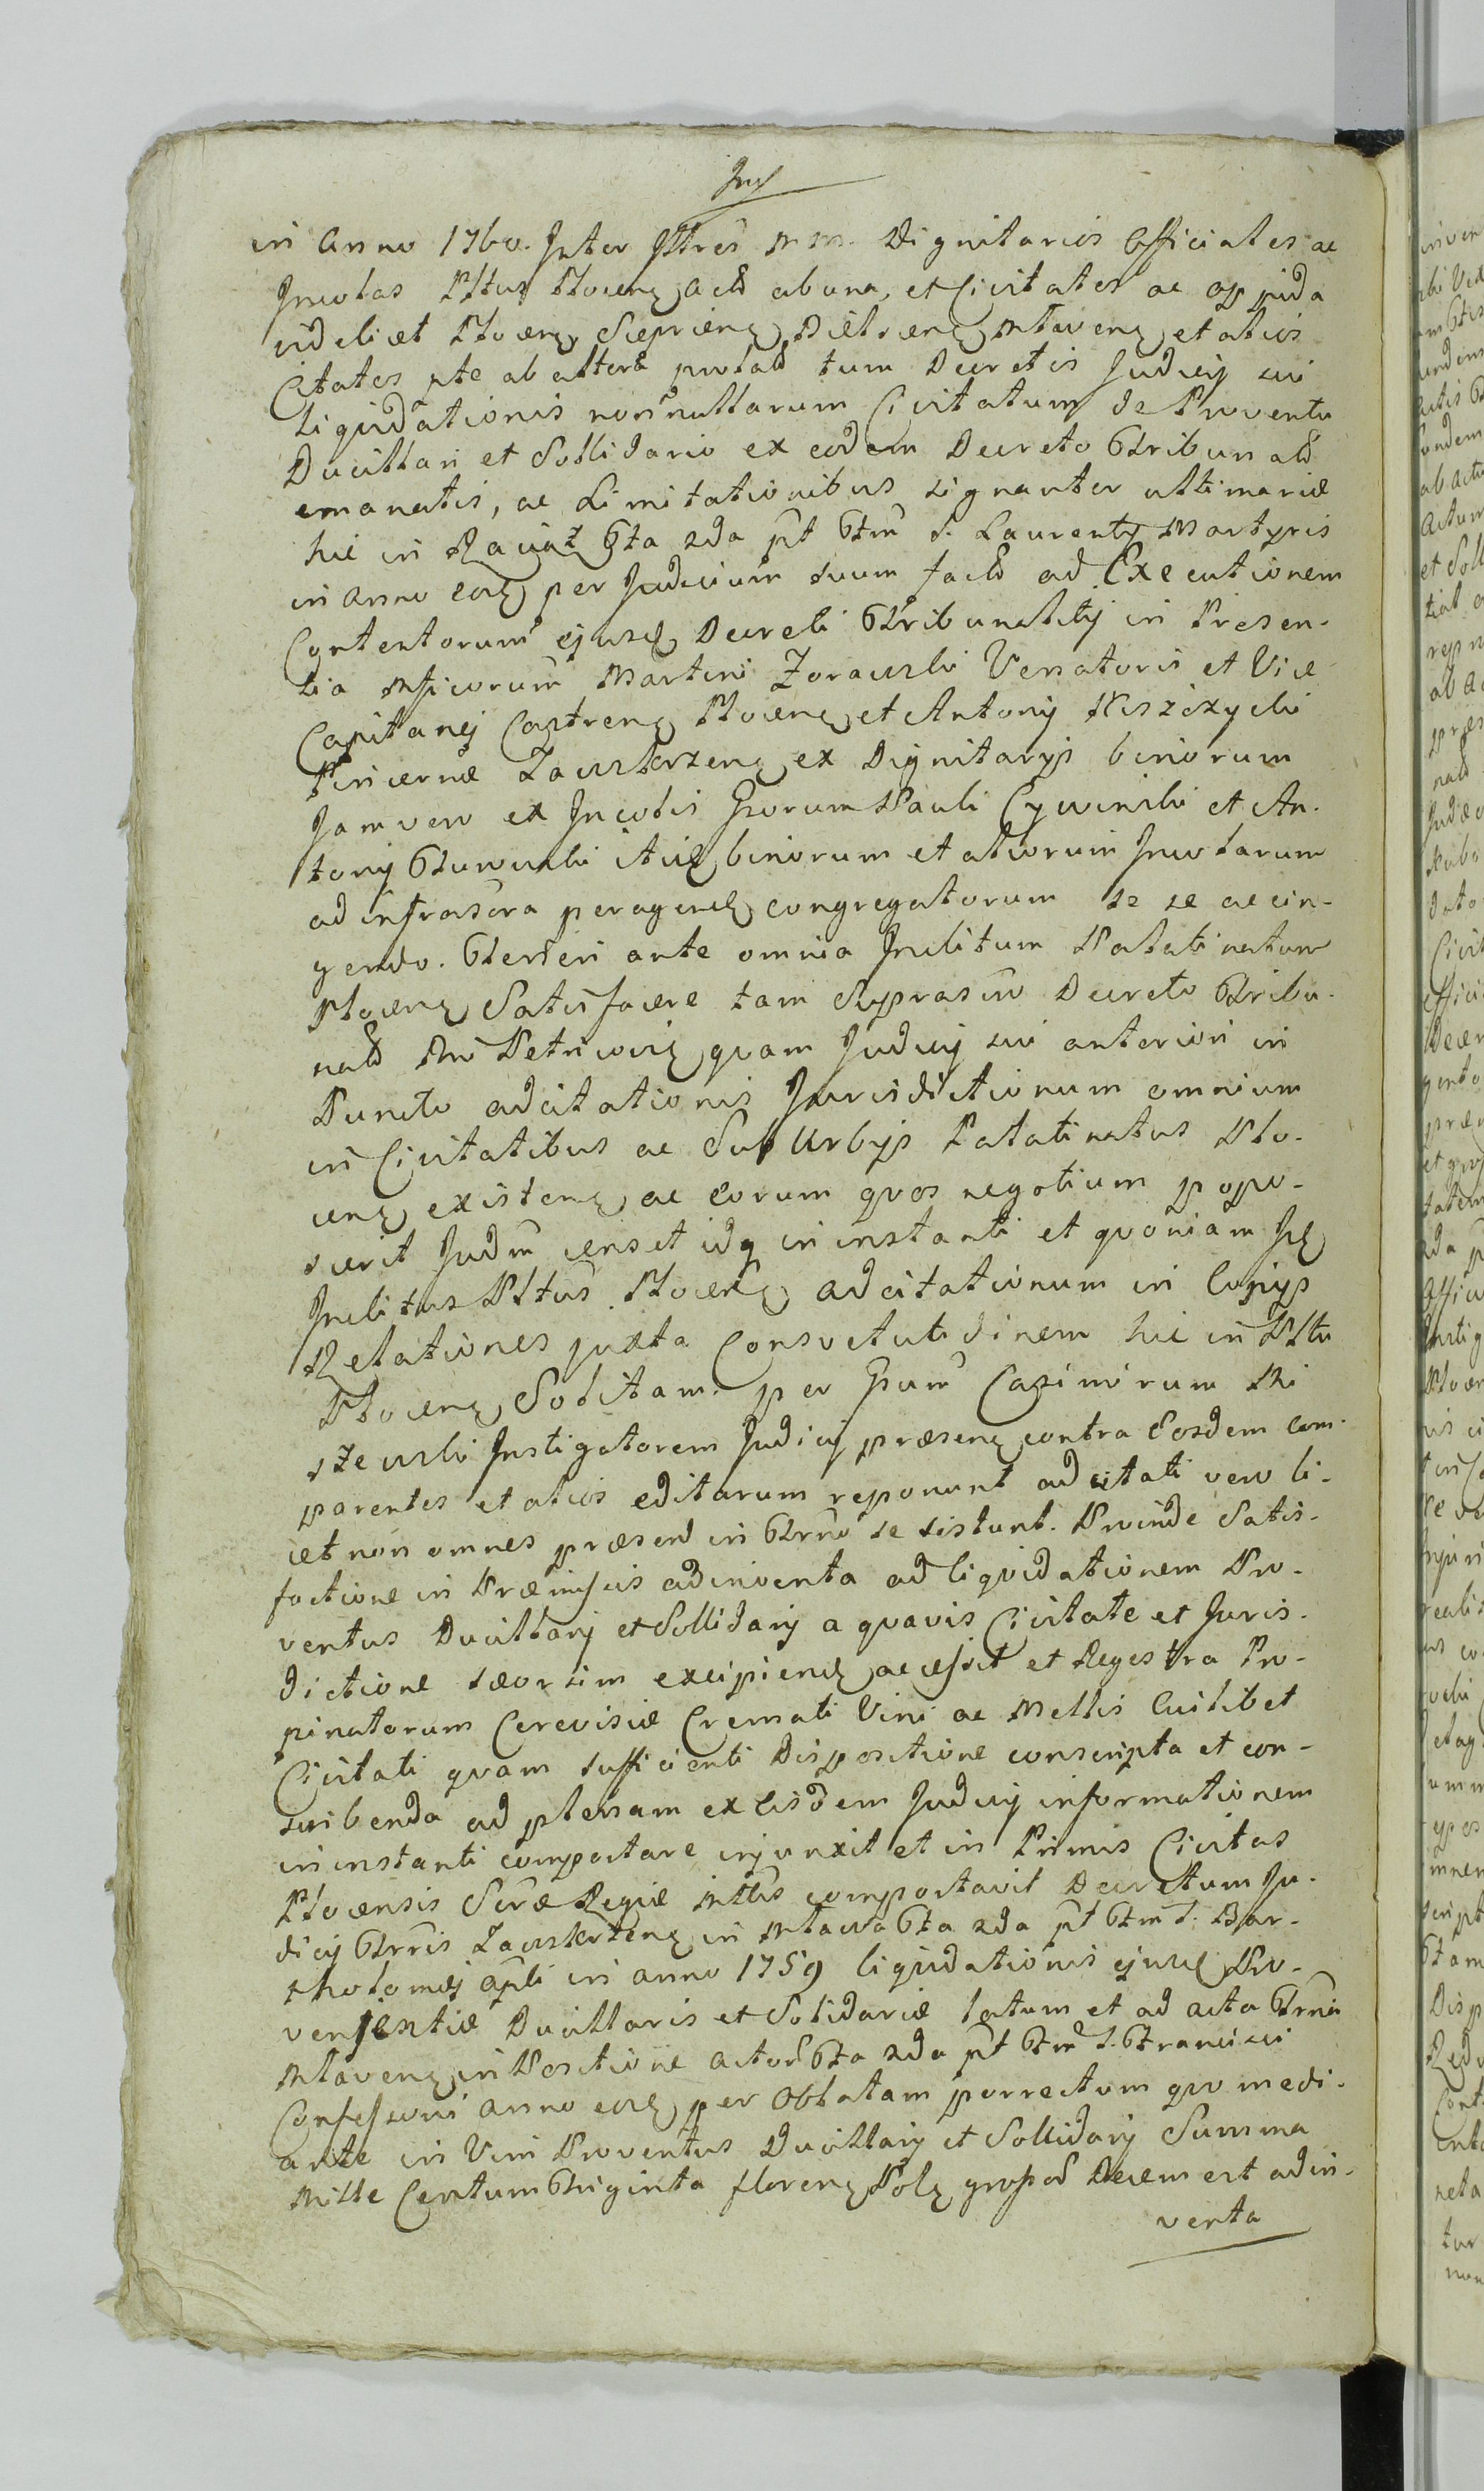 in Anno 1760. Inter Illtres MM. Dignitarios Officiales ac
Incolas Plttus Plocen. Actores ab una, et Civitates ac oppida
videlicet Plocen. Sieprcen. Bielscen. Mlaven. et alios
Citatos pte ab altera prolati tum Decretis Judicij sui
Liquidationis nonnullarum Civitatum de Proventu
Ducillari et Sollidario ex eodem Decreto Tribunali
emanatis, ac Limitationibus signanter ultimarie
hic in Raciąż fta 2da pt ftm S. Laurenty Martyris
in anno eodem per Judicium suum facta ad Executionem
Contentorum ejusd. Decreti Tribunalitij in Presen-
tia Mficorum Martini Zorawski Venatoris et Vice
Capitanej Castren. Plocen. et Antonij Niszczycki
Pincernæ Zawskrzen. ex Dignitarijs binorum
Jam vero ex Incolis Grorum Pauli Cywinski et An-
tonij itid. binorum et aliorum Incolarum
ad infrascra peragend. congregatorum se se accin-
gendo. ante omnia Inclitum Palatinatum
Plocen. Satisfacere tam Suprascro Decreto Tribu-
nali Rni Petricovien. quam Judicij sui anteriori in
Puncto adcitationis Jurisdictionum omnium
in Civitatibus ac Suburbijs Palatinatus Plo-
cen. existen. ac eorum quos negotium popo-
scerit Judm censet idq in instanti et quoniam Id.
Inclitus Plttus Plocen. adcitationum in Copijs
Relationes juxta Consvetutidinem hic in Plttu
Plocen. Solitam per Grum Casimirum Mi
szewski Instigatorem Judicij præsen. contra Eosdem com-
parentes et alios editarum reponunt adcitati vero li-
cet non omnes præsend in Trno se sistunt. Proinde Satis-
factione in Præmissis adinventa ad liquidationem Pro-
ventus Ducillarij et Sollidarij a quavis Civitate et Juris-
dictione seorsim excipiend. accessit et Regestra Pro-
pinatorum Cerevisiæ Cremati Vini ac Mellis Cuilibet
Civitati quam sufficienti Dispositione conscripta et con-
scribenda ad plenam ex Eisdem Judicij informationem
in instanti comportare injunxit et in Primis Civitas
Plocensis Scræ Regiæ Mttis comportavit Decretum Ju-
dicij Trris Zawskrzen. in Mlawa fta 2da pt ftm S. Bar-
tholomæj Apli in anno 1759 liquidationis ejusd. Pro-
venientiæ Ducillaris et Solidariæ latum et ad acta Trria
Mlaven. in Positione actor. fta 2da pt ftm S. Francisci
Confessoris anno eod. per Oblatam porrectum quo medi-
ante in Vim Proventus Ducillarij et Sollidarij Summa
Mille Centum Triginta floren. Pol. grossor Decem est adin-
venta